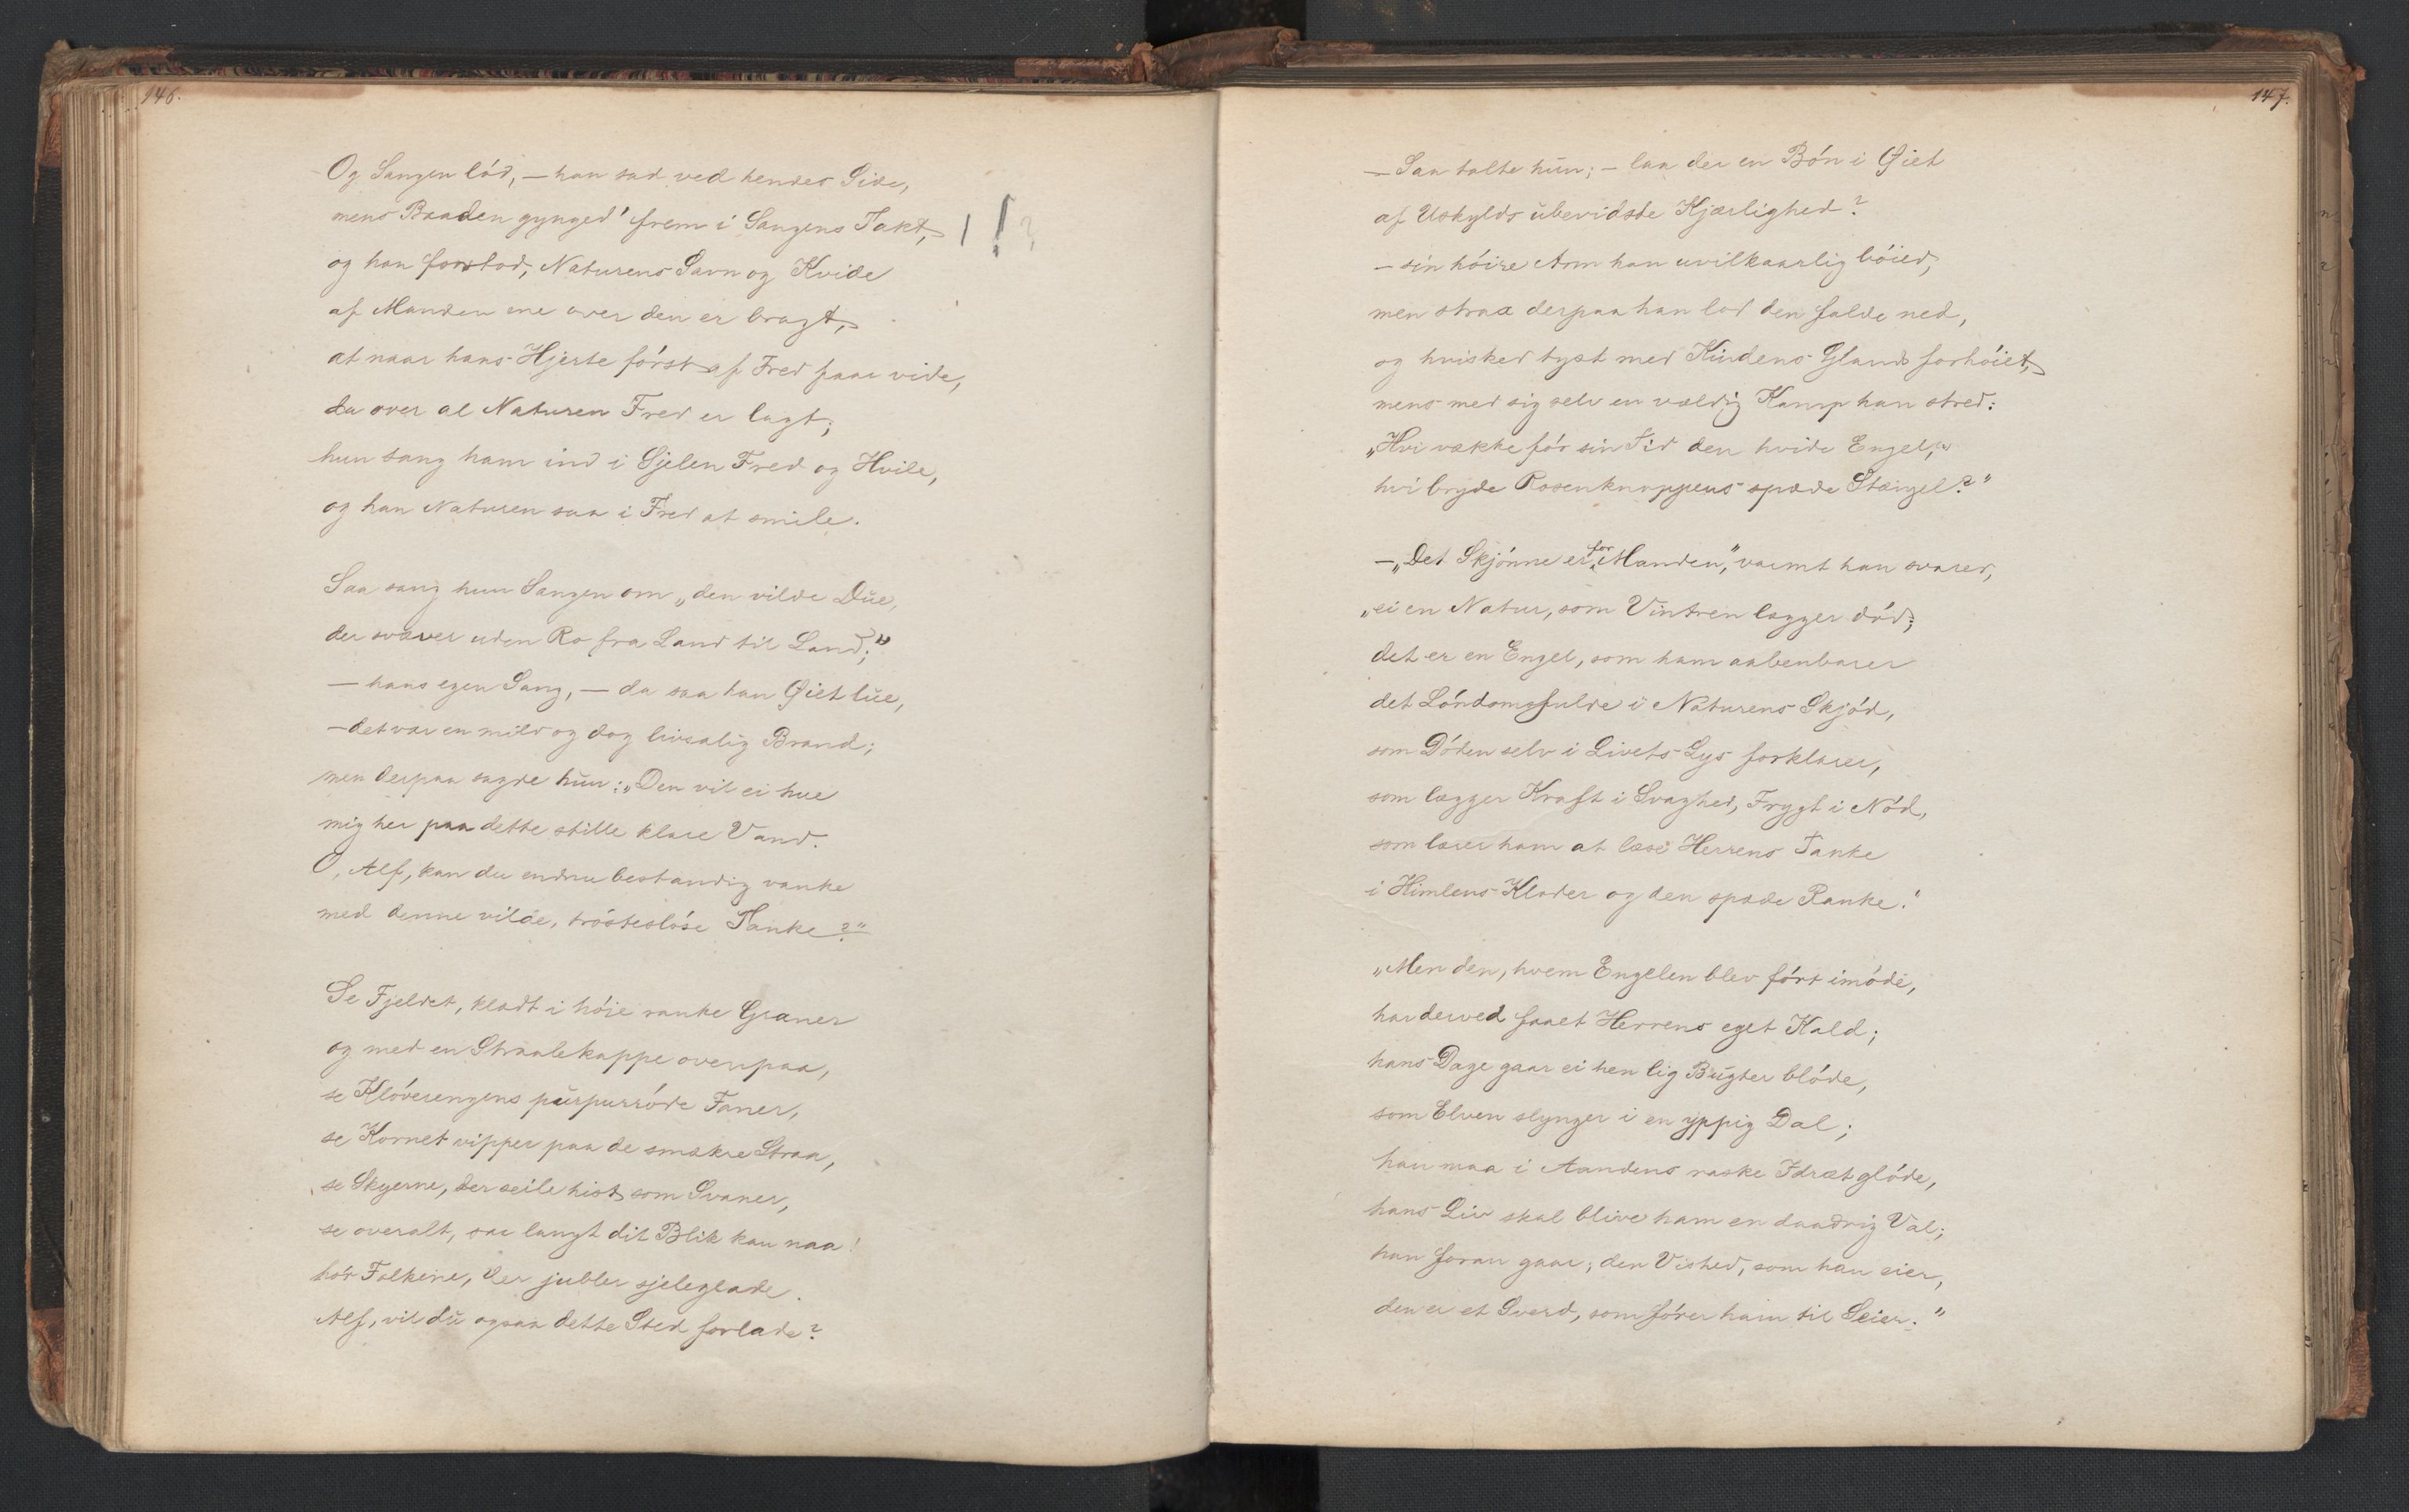 146.
Og Sangen lód, — han sad ved hendes Side,
mens Baaden gynged' frem i Sangens Takt,
og han forstod, Naturens Savn og Kvide
af Manden ene over den er bragt,
at naar hans Hjerte fórst af Fred faar vide,
da over al Naturen Fred er lagt;
hun sang ham ind i Sjelen Fred og Hvile,
og han Naturen saa i Fred at smile.
Saa sang hun Sangen om „den vilde Due,
der svæver uden Ro fra Land til Land;"
— hans egen Sang, — da saa han Øiet lue,
— det var en mild og dog livsalig Brand;
men derpaa sagde hun: „Den vil ei hue
mig her paa dette stille klare Vand.
O, Alf, kan du endnu bestandig vanke
med denne vilde, trósteslóse Tanke?"
Se Fjeldet, klædt i hóie ranke Graner
og med en Straalekappe ovenpaa,
se Klóverengens purpurróde Faner,
se Kornet vipper paa de smækre Straa,
se Skyerne, der seile hist som Svaner,
se overalt, saa langt dit Blik kan naa!
hór Folkene, der jubler sjeleglade.
Alf, vil du ogsaa dette Sted forlade?
147.
— Saa talte hun; — laa der en Bón i Øiet
af Uskylds ubevidste Kjærlighed?
— sin hóire Arm han uvilkaarlig bóied,
men strax derpaa han lod den falde ned,
og hvisked tyst med Kindens Glands forhóiet,
mens med sig selv en vældig Kamp han stred:
„Hvi vække fór sin Tid den hvide Engel,
hvi bryde Rosenknoppens spæde Stængel?"
— „Det Skjónne er for Manden," varmt han svarer,
„ei en Natur, som Vintren lægger dód;
det er en Engel, som ham aabenbarer
det Lóndomsfulde i Naturens Skjód,
som Dóden selv i Livets Lys forklarer,
som lægger Kraft i Svaghed, Frygt i Nód,
som lærer ham at læse Herrens Tanke
i Himlens Kloder og den spæde Ranke!
„Men den, hvem Engelen blev fórt imóde,
har derved faaet Herrens eget Kald;
hans Dage gaar ei hen lig Bugter blóde,
som Elven slynger i en yppig Dal;
han maa i Aandens raske Idræt glóde,
hans Liv skal blive ham en daadrig Val;
han foran gaar; den Vished, som han eier,
den er et Sverd, som fórer ham til Seier."